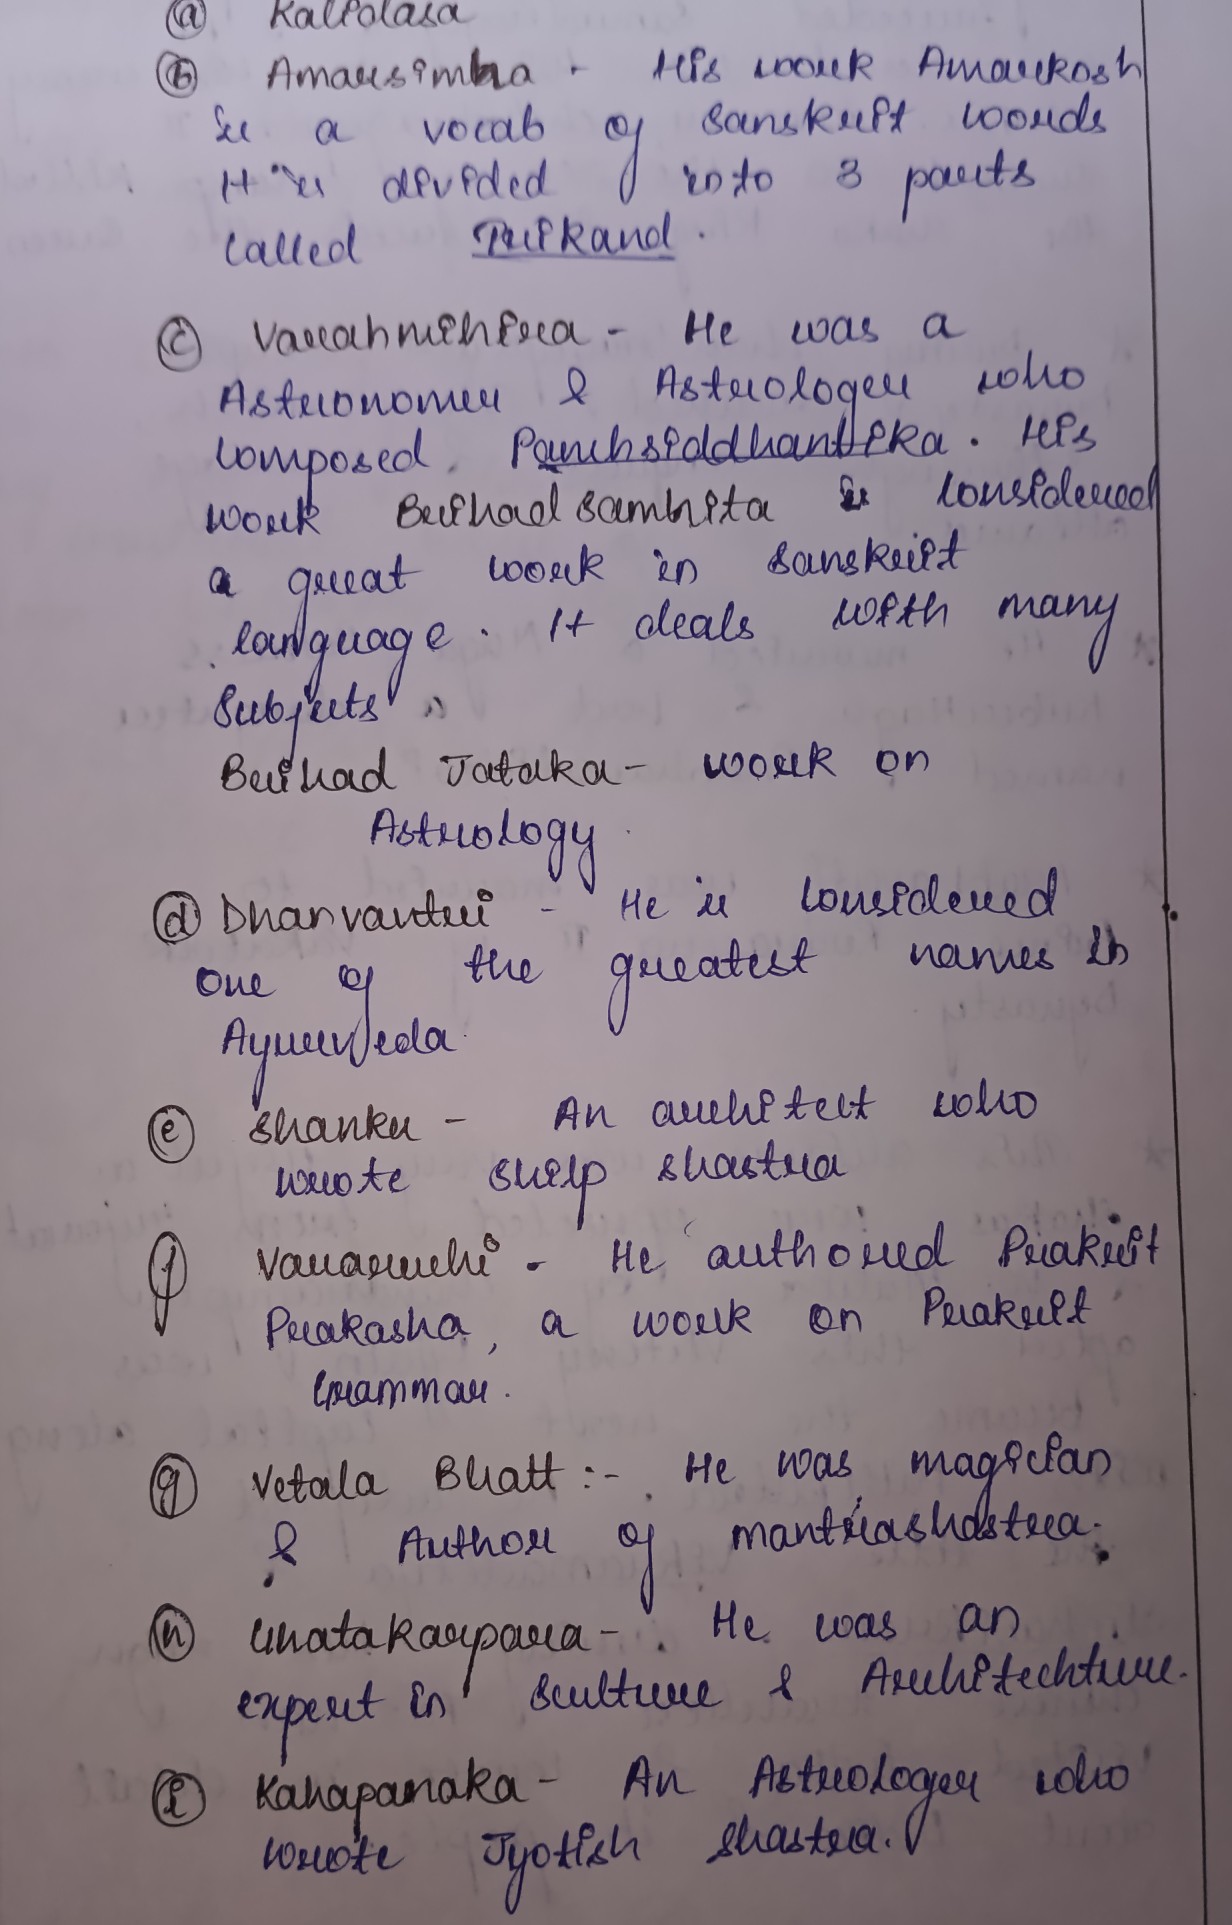 (a) Kalidasa
(b) Amarsimha - His work Amarkosh
is a vocab of Sanskrit words
It is divided into 3 parts
called Trikand.
(c) Varahmihira - He was a
Astronomer & Astrologer who
composed Panchsiddhantika. His
work Brihad Samhita is considered
a great work in Sanskrit
language. It deals with many
Subjects.
Brihad Jataka - work on
Astrology.
(d) Dhanvantri - He is considered
one of the greatest names in
Ayurveda.
(e) Shanku - An architect who
wrote Shilp Shastra
(f) Vararuchi - He authored Prakrit
Prakasha, a work on Prakrit
Grammar.
(g) Vetala Bhatt :- He was magician
& Author of mantrashastra.
(h) Ghatakarpara - He was an
expert in Sculture & Architechture.
(i) Kahapanaka - An Astrologer who
wrote Jyotish Shastra.